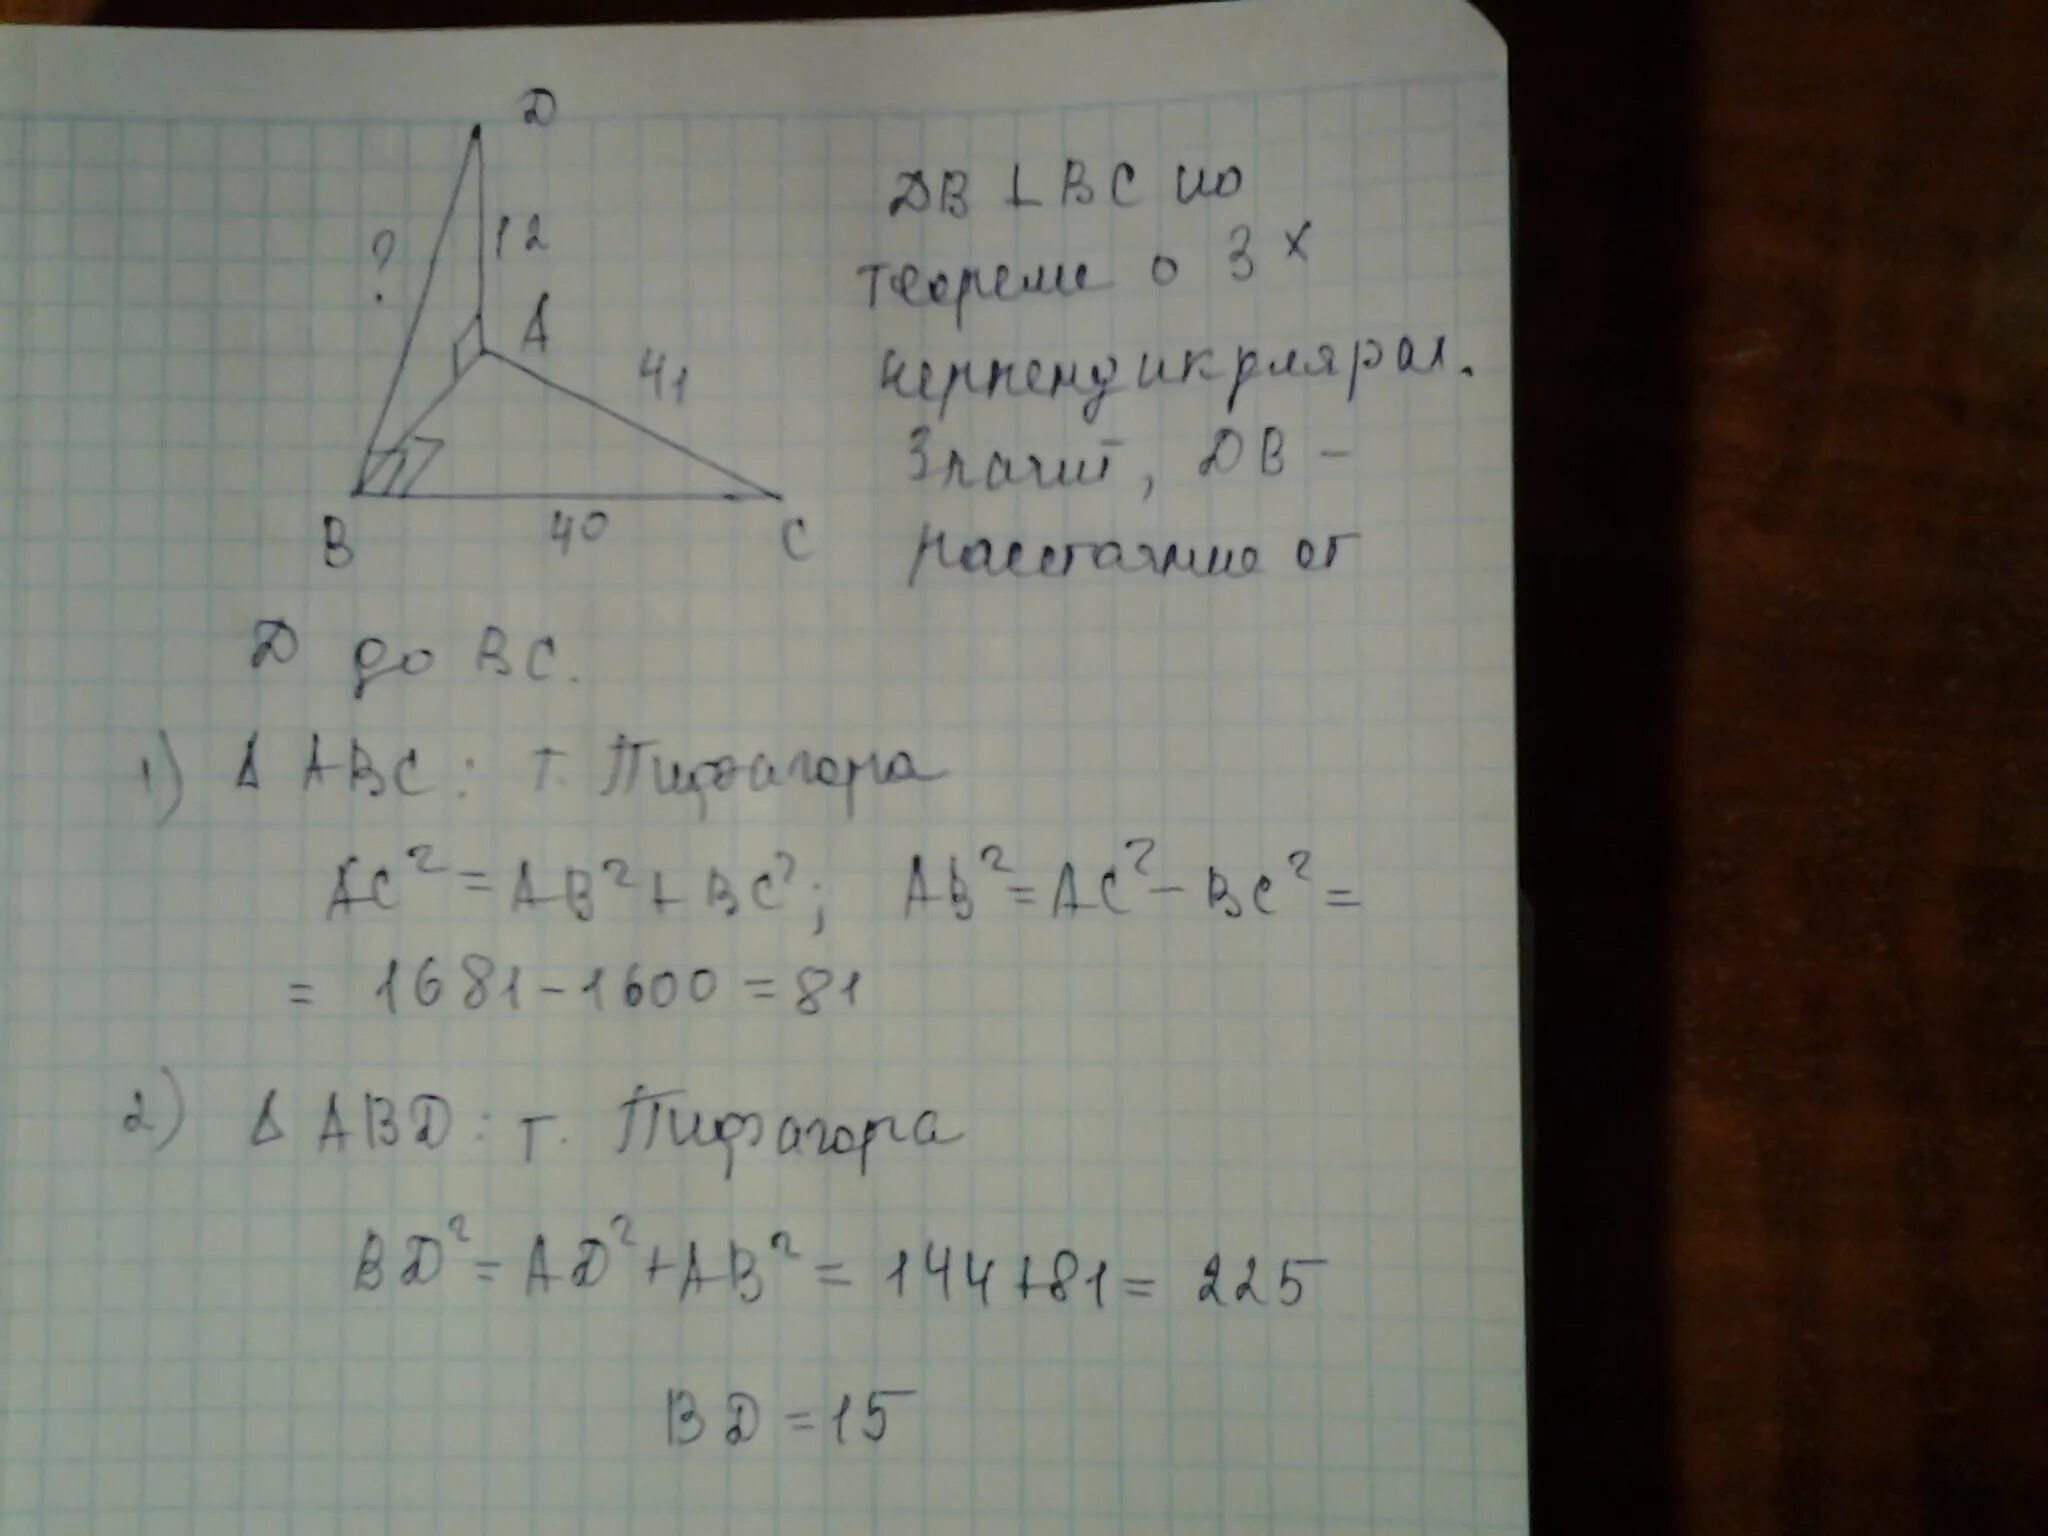 D
12
?
A
41
B
40
C
DB ⊥ BC по
теореме о 3х
перпендикулярах.
Значит, DB –
расстояние от
D до BC.
1) Δ ABC: т. Пифагора
AC² = AB² + BC²; AB² = AC² – BC² =
= 1681 – 1600 = 81
2) Δ ABD: т. Пифагора
BD² = AD² + AB² = 144 + 81 = 225
BD = 15